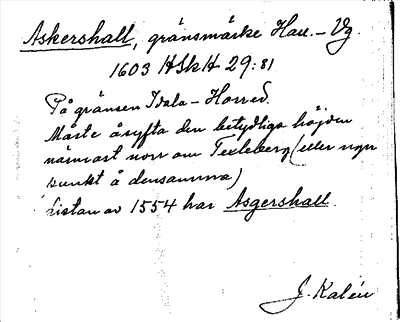 Askershall, gränsmärke Hall.–Vg.
1603 HSkH 29:81
På gränsen Idala–Horred.
Måste åsyfta den betydliga höjden
närmast norr om Texleberg (eller ngn
punkt å densamma)
Listan av 1554 har Asgershall.
J. Kalén